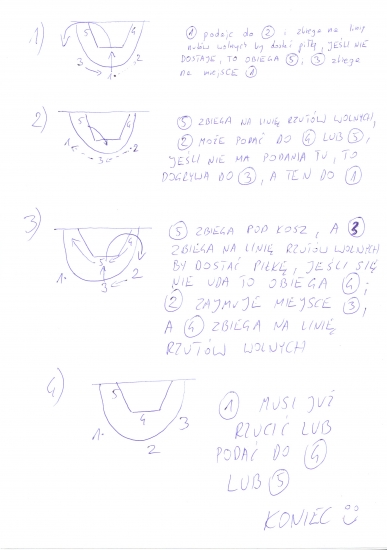 1) ① podaje do ② i zbiega na linię
rzutów wolnych by dostać piłkę, JEŚLI NIE
DOSTAJE, TO OBIEGA ⑤, ③ zbiega
na miejsce ①
5 4
3 2
1
2) ⑤ ZBIEGA NA LINIĘ RZUTÓW WOLNYCH,
② MOŻE PODAĆ DO ④ LUB ⑤,
JEŚLI NIE MA PODANIA TU, TO
DOGRYWA DO ③, A TEN DO ①
5 4
1 3 2
3) ⑤ ZBIEGA POD KOSZ, A ③
ZBIEGA NA LINIĘ RZUTÓW WOLNYCH
BY DOSTAĆ PIŁKĘ, JEŚLI SIĘ
NIE UDA TO OBIEGA ④;
② ZAJMUJE MIEJSCE ③,
A ④ ZBIEGA NA LINIĘ
RZUTÓW WOLNYCH
5 4
1 2
3
4) ① MUSI JUŻ
RZUCIĆ LUB
PODAĆ DO ④
LUB ⑤
5
4
1 3
2
KONIEC